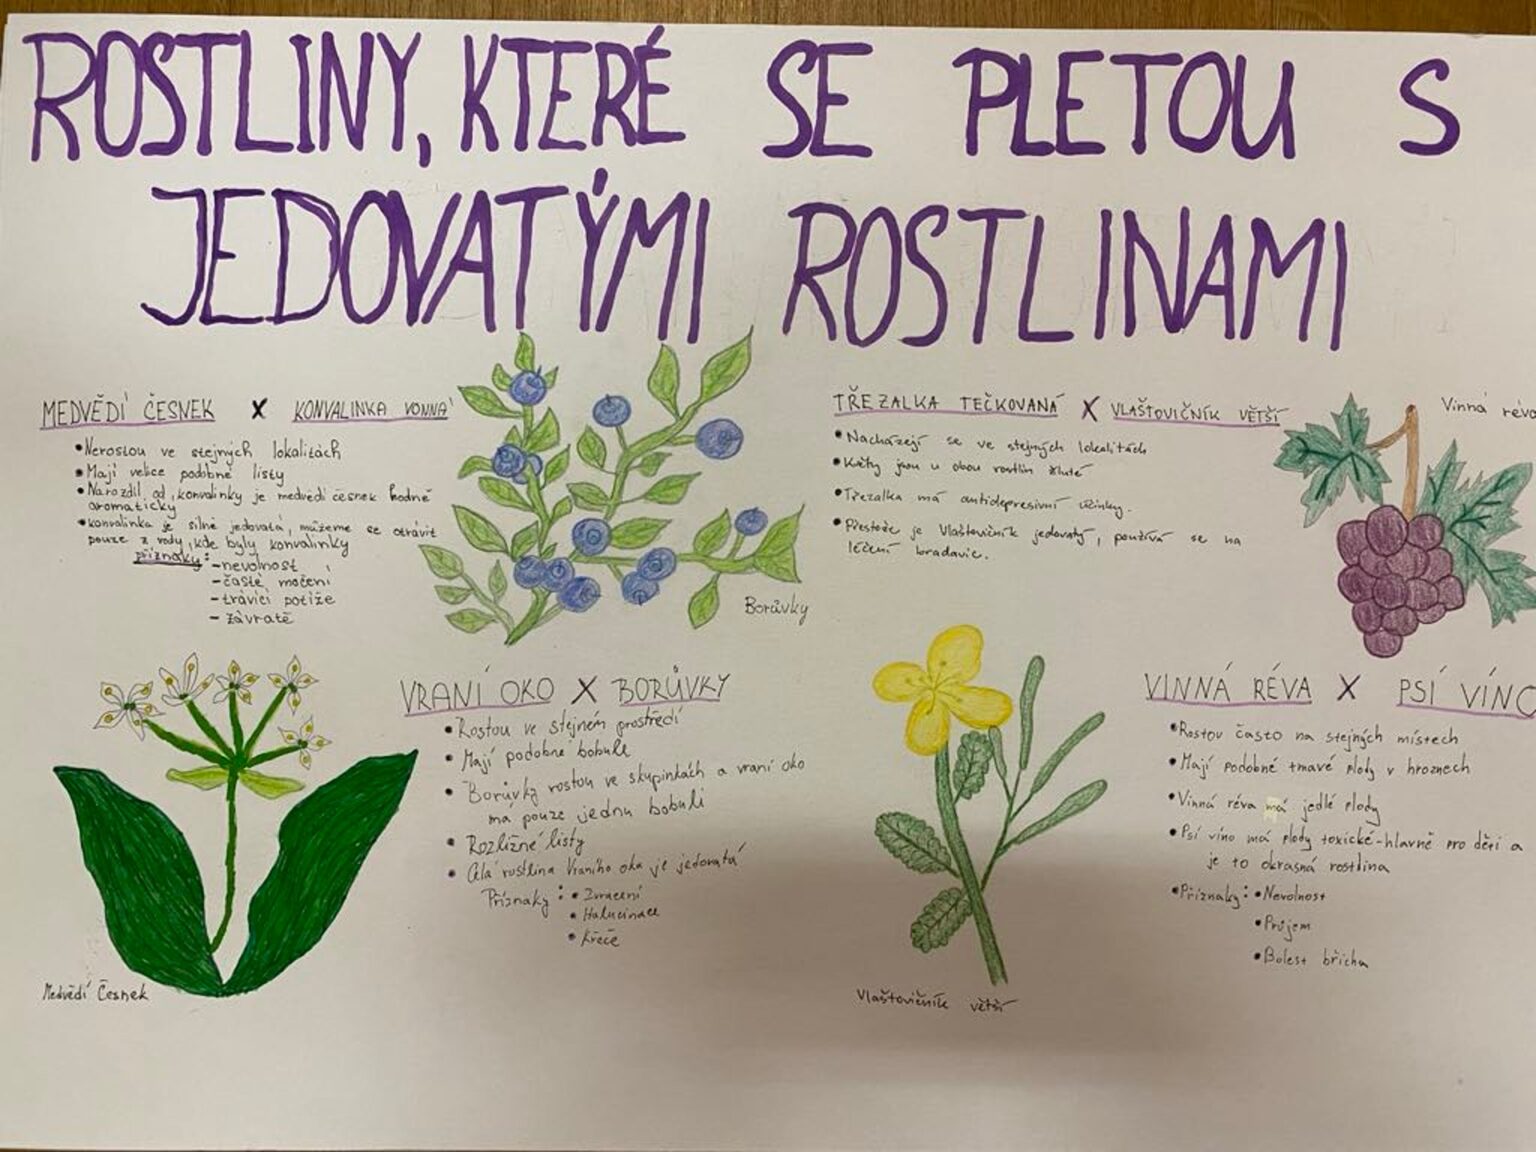 ROSTLINY, KTERÉ SE PLETOU S
JEDOVATÝMI ROSTLINAMI
MEDVĚDÍ ČESNEK X KONVALINKA VONNÁ
• Nerostou ve stejných lokalitách
• Mají velice podobné listy
• Narozdíl od konvalinky je medvědí česnek hodně
aromatický
• konvalinka je silně jedovatá, můžeme se otrávit
pouze z vody, kde byly konvalinky
příznaky:
- nevolnost
- časté močení
- trávící potíže
- závratě
Medvědí Česnek
Borůvky
VRANÍ OKO X BORŮVKY
• Rostou ve stejném prostředí
• Mají podobné bobule
• Borůvky rostou ve skupinkách a vraní oko
má pouze jednu bobuli
• Rozližné listy
• Celá rostlina Vraního oka je jedovatá
Příznaky: • Zvracení
• Halucinace
• Křeče
TŘEZALKA TEČKOVANÁ X VLAŠTOVIČNÍK VĚTŠÍ
• Nacházejí se ve stejných lokalitách
• Květy jsou u obou rostlin žluté
• Třezalka má antidepresivní účinky.
• Přestože je Vlaštovičník jedovatý, používá se na
léčení bradavic.
Vlaštovičník větší
Vinná réva
VINNÁ RÉVA X PSÍ VÍNO
• Rostou často na stejných místech
• Mají podobné tmavé plody v hroznech
• Vinná réva má jedlé plody
• Psí víno má plody toxické - hlavně pro děti a
je to okrasná rostlina
• Příznaky: • Nevolnost
• Průjem
• Bolest břicha